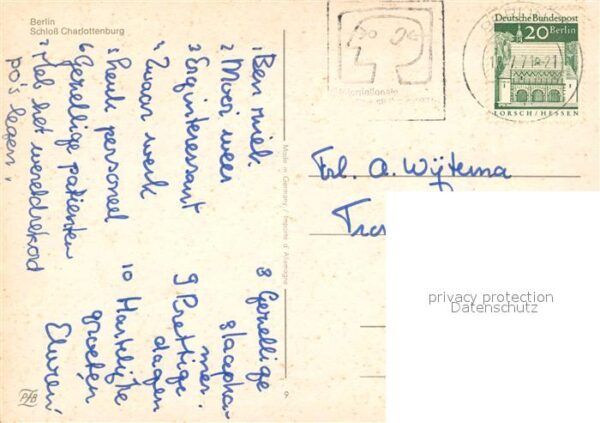 Berlin
Schloß Charlottenburg
1 Ben ziek.
2 Mooi weer
3 Erg interessant
4 Zwaar werk
5 Leuk personeel
6 Gezellige patienten
7 Heb het wereldrekord
po's legen.
8 Gezellige
slaapka-
mer.
9 Prettige
dagen
10 Hartelijke
groeten
Made in Germany / Importé d'Allemagne
9
PFB
Internationale
Deutsche Bundespost
20 Berlin
LORSCH/HESSEN
Frl. A. Wijtema
privacy protection
Datenschutz